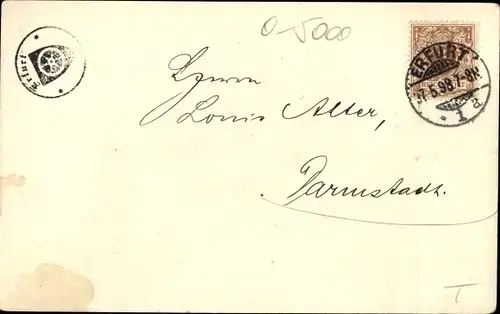 0-5000
Erfurt
ERFURT
7.5.98.7-8N.
* 1 a
Herrn
Louis Alter,
Darmstadt.
T